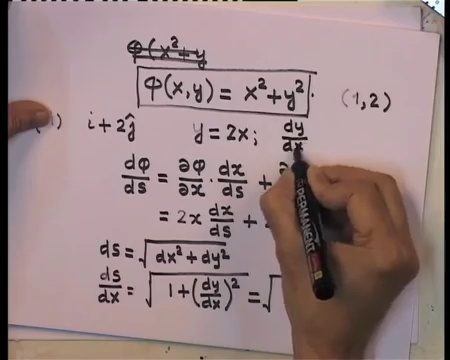 φ(x²+y
φ(x,y) = x²+y².
(1,2)
i+2ĵ y=2x; dy/dx
dφ/ds = ∂φ/∂x · dx/ds +
= 2x dx/ds +
ds = √(dx²+dy²)
ds/dx = √(1+(dy/dx)²) = √
PERMANENT